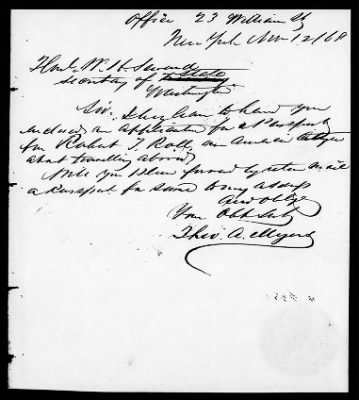 Office 23 William St
New York Nov 12/68
Honl. W. H. Seward
Secretary of State
Washington
Sir, I beg leave to hand you
enclosed an application for a Passport
for Robert T. Roll, an American citizen
about travelling abroad,
Will you please forward by return mail
a Passport for same to my address
And oblige
Your Obt Svt
Theo. A. Myers